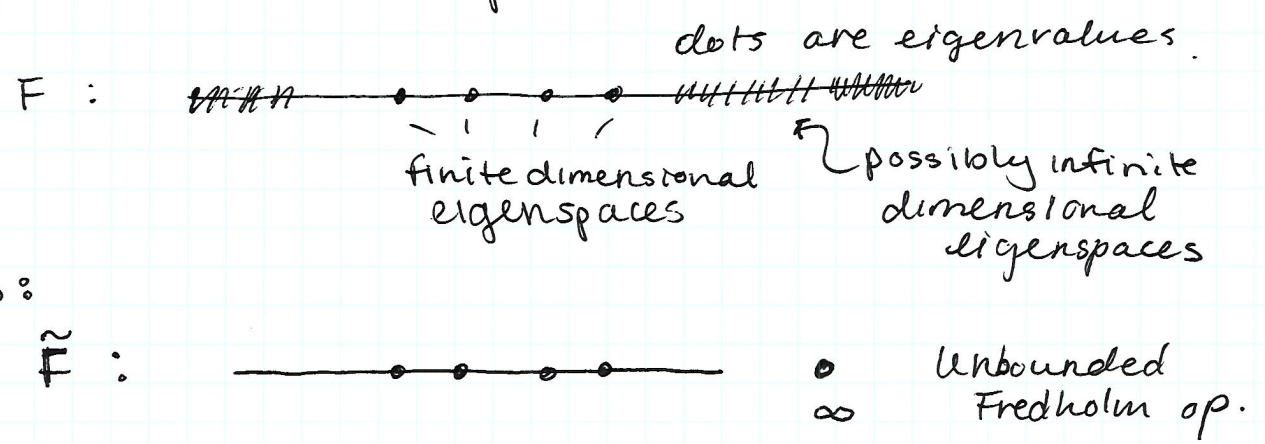 dots are eigenvalues.
F :
finite dimensional
eigenspaces
possibly infinite
dimensional
eigenspaces
:
F̃ :
∞
Unbounded
Fredholm op.